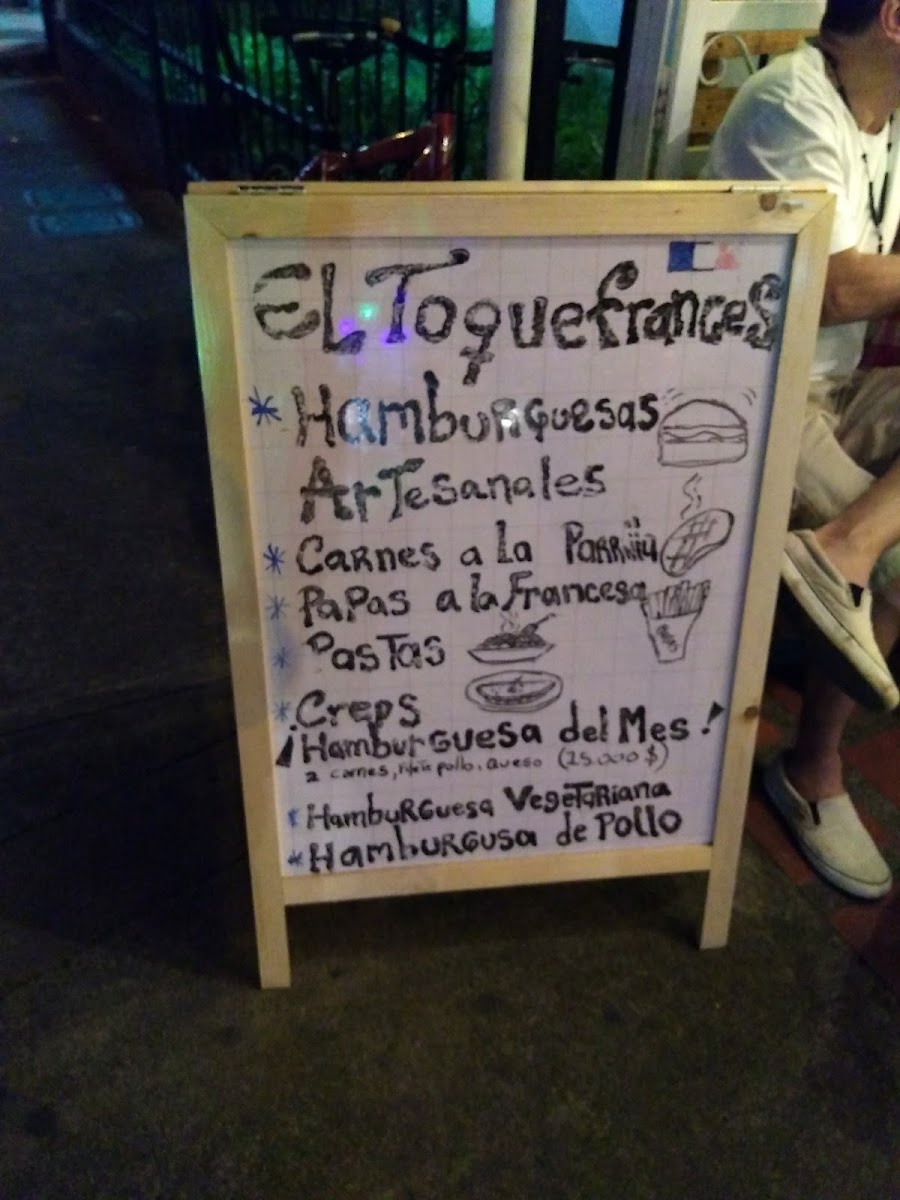 EL Toquefrances
* Hamburguesas
Artesanales
* Carnes a la Parrilla
* Papas a la Francesa
* Pastas
* Creps
¡Hamburguesa del Mes!
2 carnes, pollo, Queso (25.000 $)
* Hamburguesa Vegetariana
* Hamburgusa de Pollo